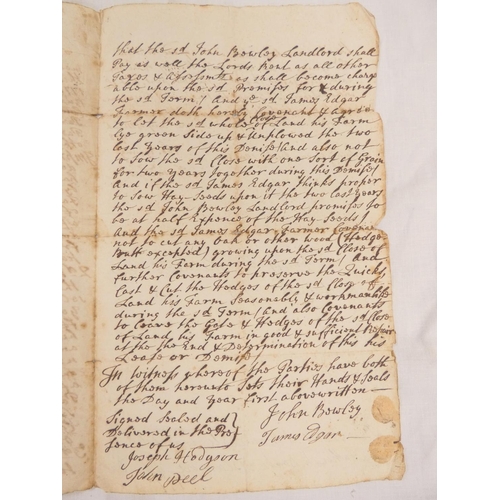 that the sd John Bowley Landlord shall
Pay as well the Lords Rent as all other
Taxes & Assessmts as shall become charg
able upon the sd Premises for & during
the sd Term / And ye sd James Edgar
Farmer doth hereby Covenant & agree
to let the sd whole Close of Land his Farm
lye green Side up & unplowed the two
last Years of this Demise / and also not
to sow the sd Close with one Sort of Grain
for two Years together during this Demise /
And if the sd James Edgar thinks proper
to sow Hay Seeds upon it the two last Years
the sd John Bowley Landlord promises to
be at half Expence of the Hay Seeds /
And the sd James Edgar Farmer
not to cut any Oak or other wood (Hedge
excepted) growing upon the sd Close of
Land his Farm during the sd Term / And
further Covenants to preserve the Quicks,
Cast & Cut the Hedges of the sd Close of
Land his Farm Seasonably & workmanlike
during the sd Term / and also Covenants
to leave the Gate & Hedges of the sd Close
of Land his Farm in good & sufficient Repair
at the End & Determination of this his
Lease or Demise
In Witness whereof the Parties have both
of them hereunto Sets their Hands & Seals
the Day and Year first abovewritten
Signed Sealed and
Delivered in the Pre
sence of us
John Bowley
James Edgar
Joseph Hodgson
John Peel